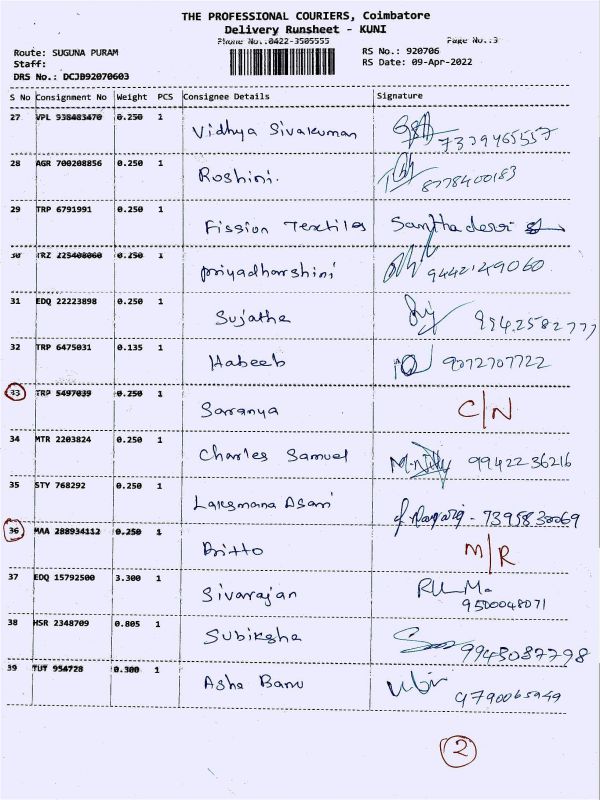 THE PROFESSIONAL COURIERS, Coimbatore
Delivery Runsheet - KUNI
Phone No.:0422-3505555 Page No.:3
Route: SUGUNA PURAM RS No.: 920706
Staff: RS Date: 09-Apr-2022
DRS No.: DCJB92070603
S No Consignment No Weight PCS Consignee Details Signature
27 VPL 938483470 0.250 1 Vidhya Sivakumar 7339465557
28 AGR 700208856 0.250 1 Roshini. 8778400183
29 TRP 6791991 0.250 1 Fission Textiles
30 TRZ 225408060 0.250 1 Priyadharshini 9442149060
31 EDQ 22223898 0.250 1 Sujatha 9942582777
32 TRP 6475031 0.135 1 Habeeb 9072707722
33 TRP 5497039 0.250 1 Saranya C/N
34 MTR 2203824 0.250 1 Charles Samuel 9942236216
35 STY 768292 0.250 1 Laksmana Asari - 7395830069
36 MAA 288934112 0.250 1 Britto M/R
37 EDQ 15792500 3.300 1 Sivarajan 9500048071
38 HSR 2348709 0.805 1 Subiksha 9943087798
39 TUT 954728 0.300 1 Asha Banu 9790065949
2